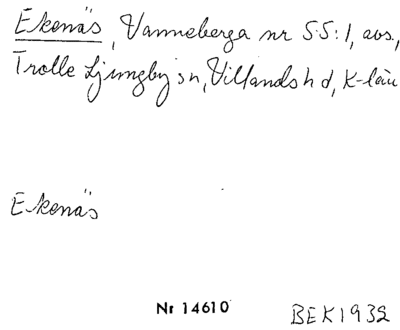 Ekenäs, Vanneberga nr 55:1, avs,
Trolle Ljungby sn, Villands hd, K-län
Ekenäs
Nr 14610 BEK 1932